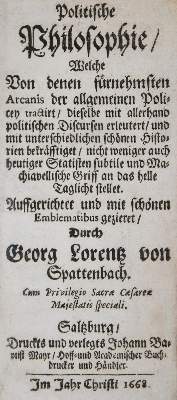 Politische
Philosophie/
Welche
Von denen fürnehmsten
Arcanis der allgemeinen Poli-
cey tractirt/ dieselbe mit allerhand
politischen Discursen erleutert/ und
mit unterschiedlichen schönen Histo-
rien bekräfftiget/ nicht weniger auch
heutiger Statisten subtile und Ma-
chiavellische Griff an das helle
Taglicht stellet.
Auffgerichtet und mit schönen
Emblematibus gezieret/
Durch
Georg Lorentz von
Spattenbach.
Cum Privilegio Sacræ Cæsareæ
Majestatis speciali.
Saltzburg/
Druckts und verlegts Johann Ba-
ptist Mayr/ Hoff- und Academischer Buch-
drucker und Händler.
Im Jahr Christi 1668.